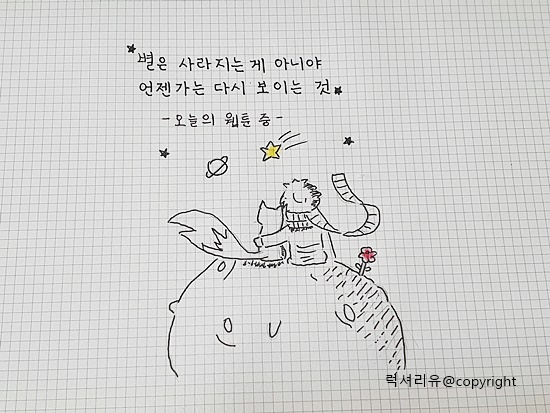 별은 사라지는 게 아니야
언젠가는 다시 보이는 것
-오늘의 웹툰 중-
럭셔리유@copyright